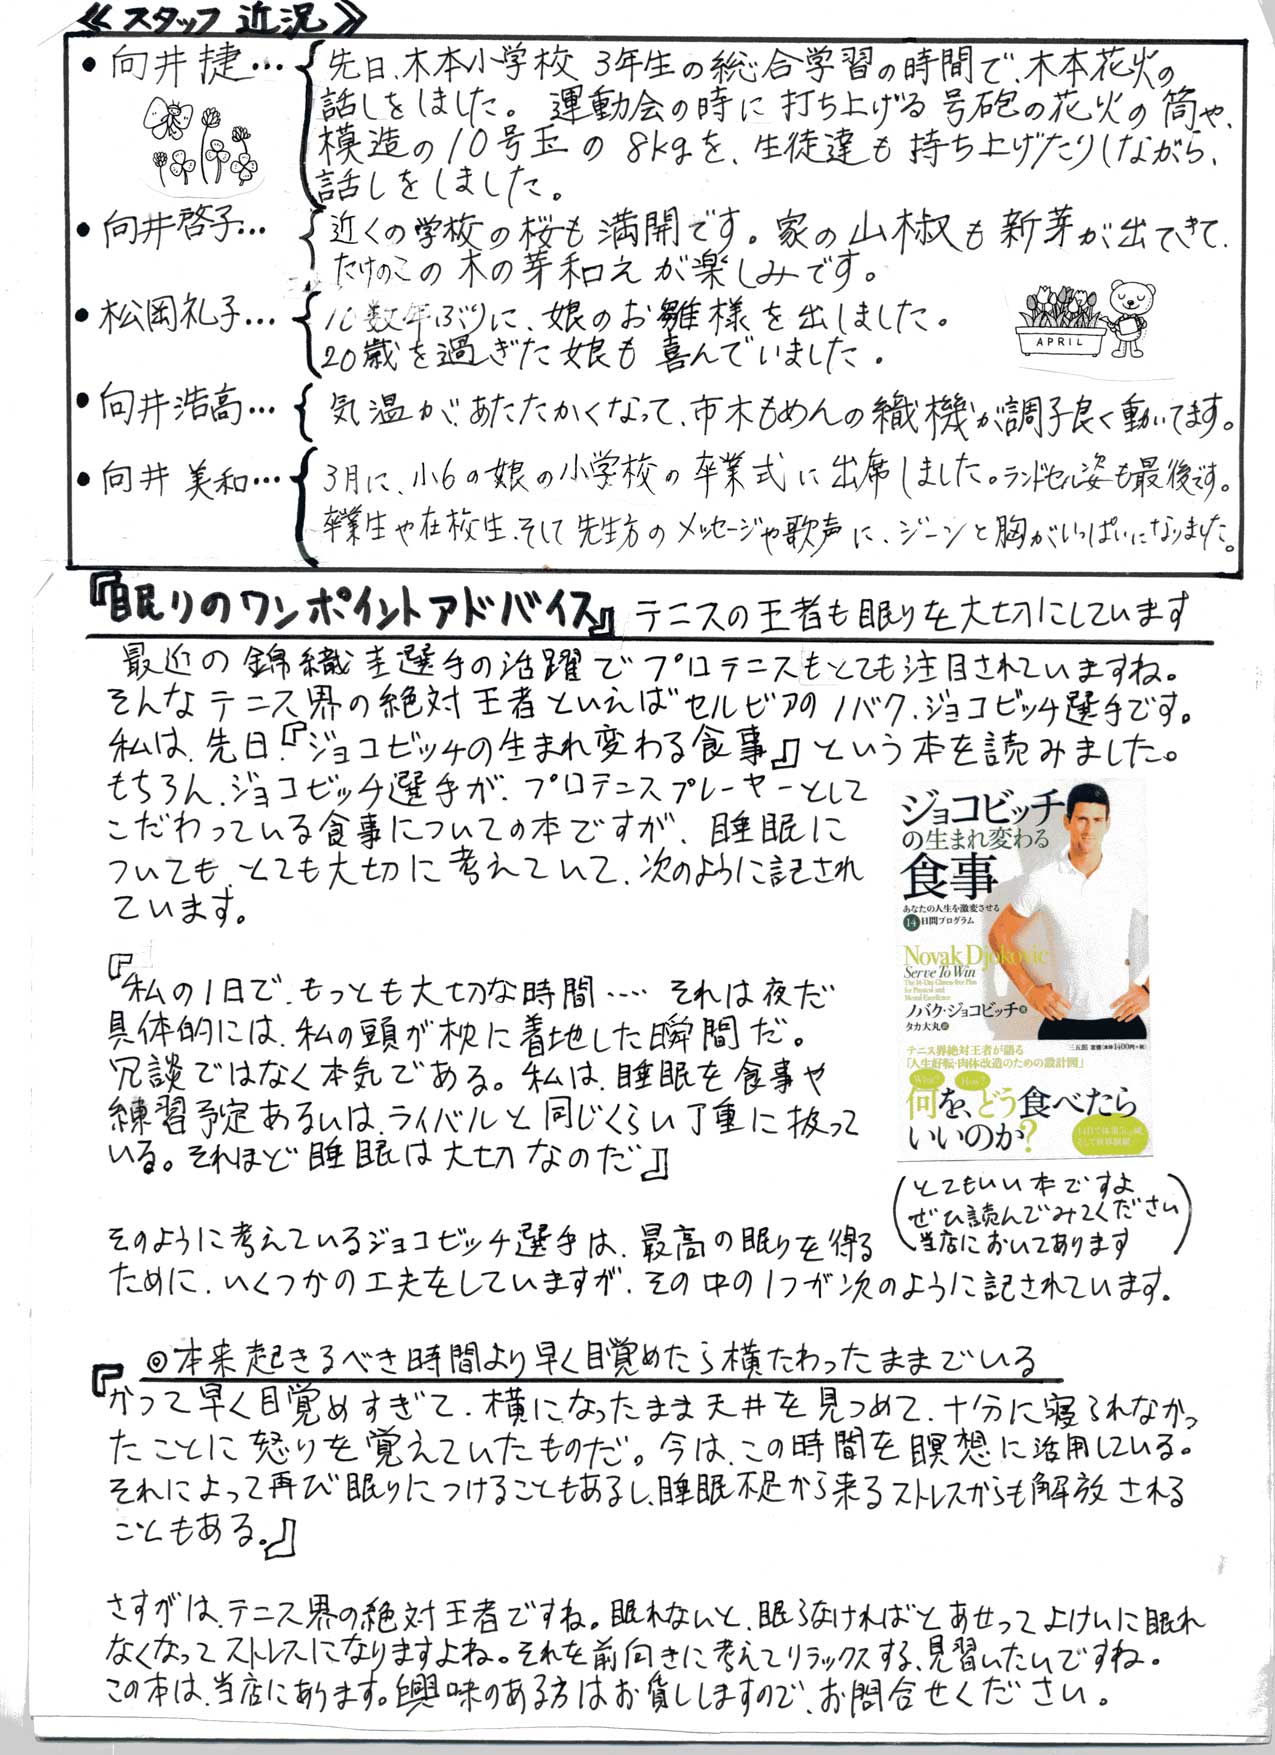 ≪スタッフ 近況≫
• 向井 捷… 先日、木本小学校 3年生の総合学習の時間で、木本花火の
話しをしました。運動会の時に打ち上げる号砲の花火の筒や、
模造の10号玉の8kgを、生徒達も持ち上げたりしながら、
話しをしました。
• 向井啓子… 近くの学校の桜も満開です。家の山椒も新芽が出てきて、
たけのこの木の芽和えが楽しみです。
• 松岡礼子… 10数年ぶりに、娘のお雛様を出しました。
20歳を過ぎた娘も喜んでいました。
APRIL
• 向井浩高… 気温があたたかくなって、市木もめんの織機が調子良く動いてます。
• 向井 美和… 3月に、小6の娘の小学校の卒業式に出席しました。ランドセル姿も最後です。
卒業生や在校生、そして先生方のメッセージや歌声に、ジーンと胸がいっぱいになりました。
『眠りのワンポイントアドバイス』 テニスの王者も眠りを大切にしています
最近の錦織圭選手の活躍でプロテニスもとても注目されていますね。
そんなテニス界の絶対王者といえばセルビアのノバク・ジョコビッチ選手です。
私は、先日『ジョコビッチの生まれ変わる食事』という本を読みました。
もちろん、ジョコビッチ選手が、プロテニスプレーヤーとして
こだわっている食事についての本ですが、睡眠に
ついても、とても大切に考えていて、次のように記され
ています。
『私の1日で、もっとも大切な時間‥‥ それは夜だ
具体的には、私の頭が枕に着地した瞬間だ。
冗談ではなく本気である。私は、睡眠を食事や
練習予定あるいは、ライバルと同じくらい丁重に扱って
いる。それほど睡眠は大切なのだ』
ジョコビッチ
の生まれ変わる
食事
あなたの人生を激変させる
14日間プログラム
Novak Djokovic
Serve To Win
The 14-Day Gluten-free Plan
for Physical and
Mental Excellence
ノバク・ジョコビッチ 著
タカ大丸 訳
三五館 定価(本体1400円+税)
テニス界絶対王者が語る
「人生好転・肉体改造のための設計図」
What? How?
何を、どう食べたら
いいのか?
(とてもいい本ですよ
ぜひ読んでみてください
当店においてあります)
そのように考えているジョコビッチ選手は、最高の眠りを得る
ために、いくつかの工夫をしていますが、その中の1つが次のように記されています。
◎本来起きるべき時間より早く目覚めたら横たわったままでいる
『かつて早く目覚めすぎて、横になったまま天井を見つめて、十分に寝られなかっ
たことに怒りを覚えていたものだ。今は、この時間を瞑想に活用している。
それによって再び眠りにつけることもあるし、睡眠不足から来るストレスからも解放される
こともある。』
さすがは、テニス界の絶対王者ですね。眠れないと、眠らなければとあせってよけいに眠れ
なくなってストレスになりますよね。それを前向きに考えてリラックスする、見習いたいですね。
この本は、当店にあります。興味のある方はお貸ししますので、お問合せください。